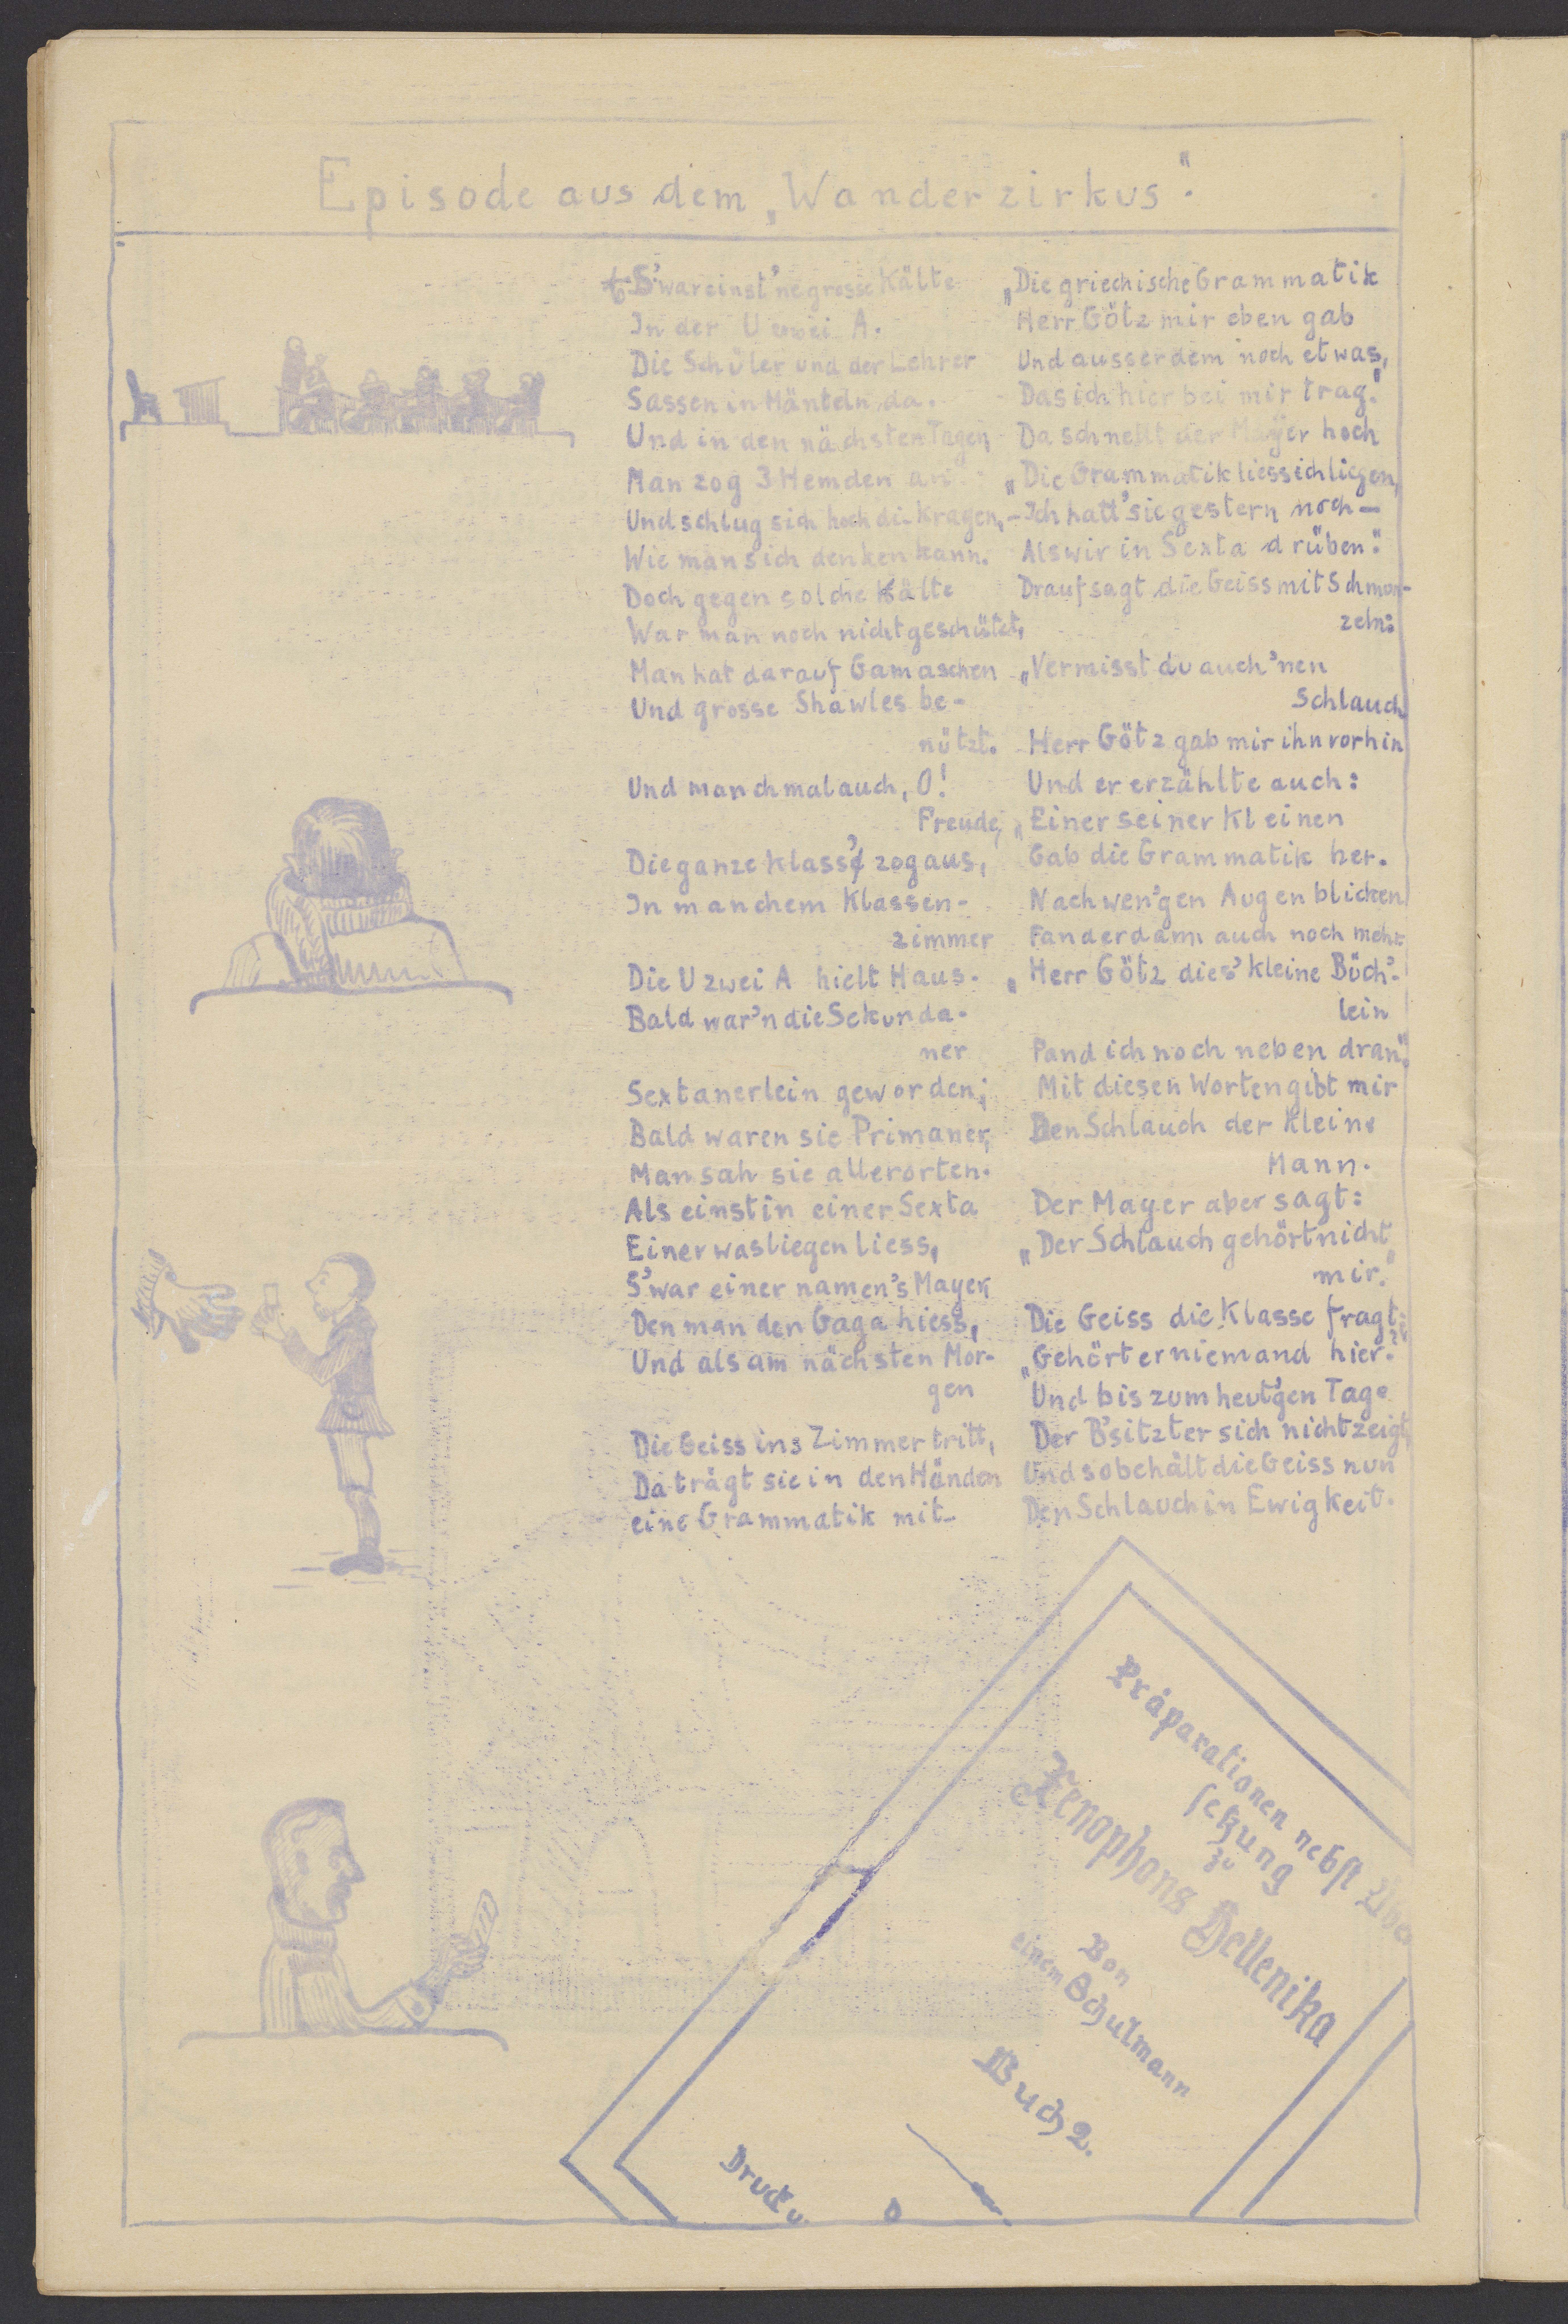 Episode aus dem „Wanderzirkus".
S'war einst 'ne grosse Kälte
In der U zwei A.
Die Schüler und der Lehrer
Sassen in Mänteln da.
Und in den nächsten Tagen
Man zog 3 Hemden an
Und schlug sich hoch die Kragen,
Wie man sich denken kann.
Doch gegen solche Kälte
War man noch nicht geschützt,
Man hat darauf Gamaschen
Und grosse Shawles be-
nützt.
Und manchmal auch, O!
Freude,
Die ganze Klass' zog aus,
In manchem Klassen-
zimmer
Die U zwei A hielt Haus.
Bald war'n die Sekunda-
ner
Sextanerlein geworden;
Bald waren sie Primaner,
Man sah sie allerorten.
Als einst in einer Sexta
Einer was liegen liess,
S'war einer namen's Mayer,
Den man den Gaga hiess,
Und als am nächsten Mor-
gen
Die Geiss ins Zimmer tritt,
Da trägt sie in den Händen
eine Grammatik mit.
„Die griechische Grammatik
Herr Götz mir eben gab
Und ausserdem noch etwas,
Das ich hier bei mir trag."
Da schnellt der Mayer hoch
„Die Grammatik liess ich liegen,
– Ich hatt' sie gestern noch –
Als wir in Sexta drüben."
Drauf sagt die Geiss mit Schmun-
zeln:
„Vermisst du auch 'nen
Schlauch
Herr Götz gab mir ihn vorhin
Und er erzählte auch:
„Einer seiner Kleinen
Gab die Grammatik her.
Nach wen'gen Augenblicken
Fand er dann auch noch mehr
„Herr Götz dies' kleine Büch'-
lein
Fand ich noch neben dran".
Mit diesen Worten gibt mir
Den Schlauch der kleine
Mann.
Der Mayer aber sagt:
„Der Schlauch gehört nicht
mir."
Die Geiss die Klasse fragt:
„Gehört er niemand hier?"
Und bis zum heut'gen Tage
Der B'sitzter sich nicht zeigt,
Und so behält die Geiss nun
Den Schlauch in Ewigkeit.
Präparationen nebst Übe
setzung
zu
Xenophons Hellenika
Von
einem Schulmann
Buch 2.
Druck u.